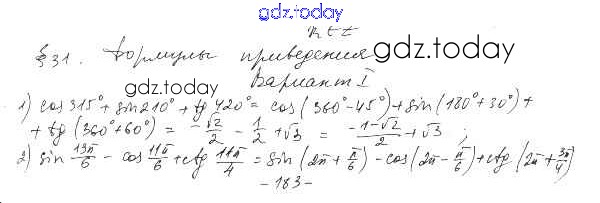 gdz.today
K-Z-Z
§31. Формулы приведения gdz.today
gdz.today Вариант I
1) cos 315° + sin 210° + tg 420° = cos (360° - 45°) + sin (180° + 30°) +
+ tg (360° + 60°) = -√2/2 - 1/2 + √3 = -1-√2/2 + √3 ;
2) sin 13π/6 - cos 11π/6 + ctg 11π/4 = sin (2π + π/6) - cos (2π - π/6) + ctg (2π + 3π/4)
- 183 -